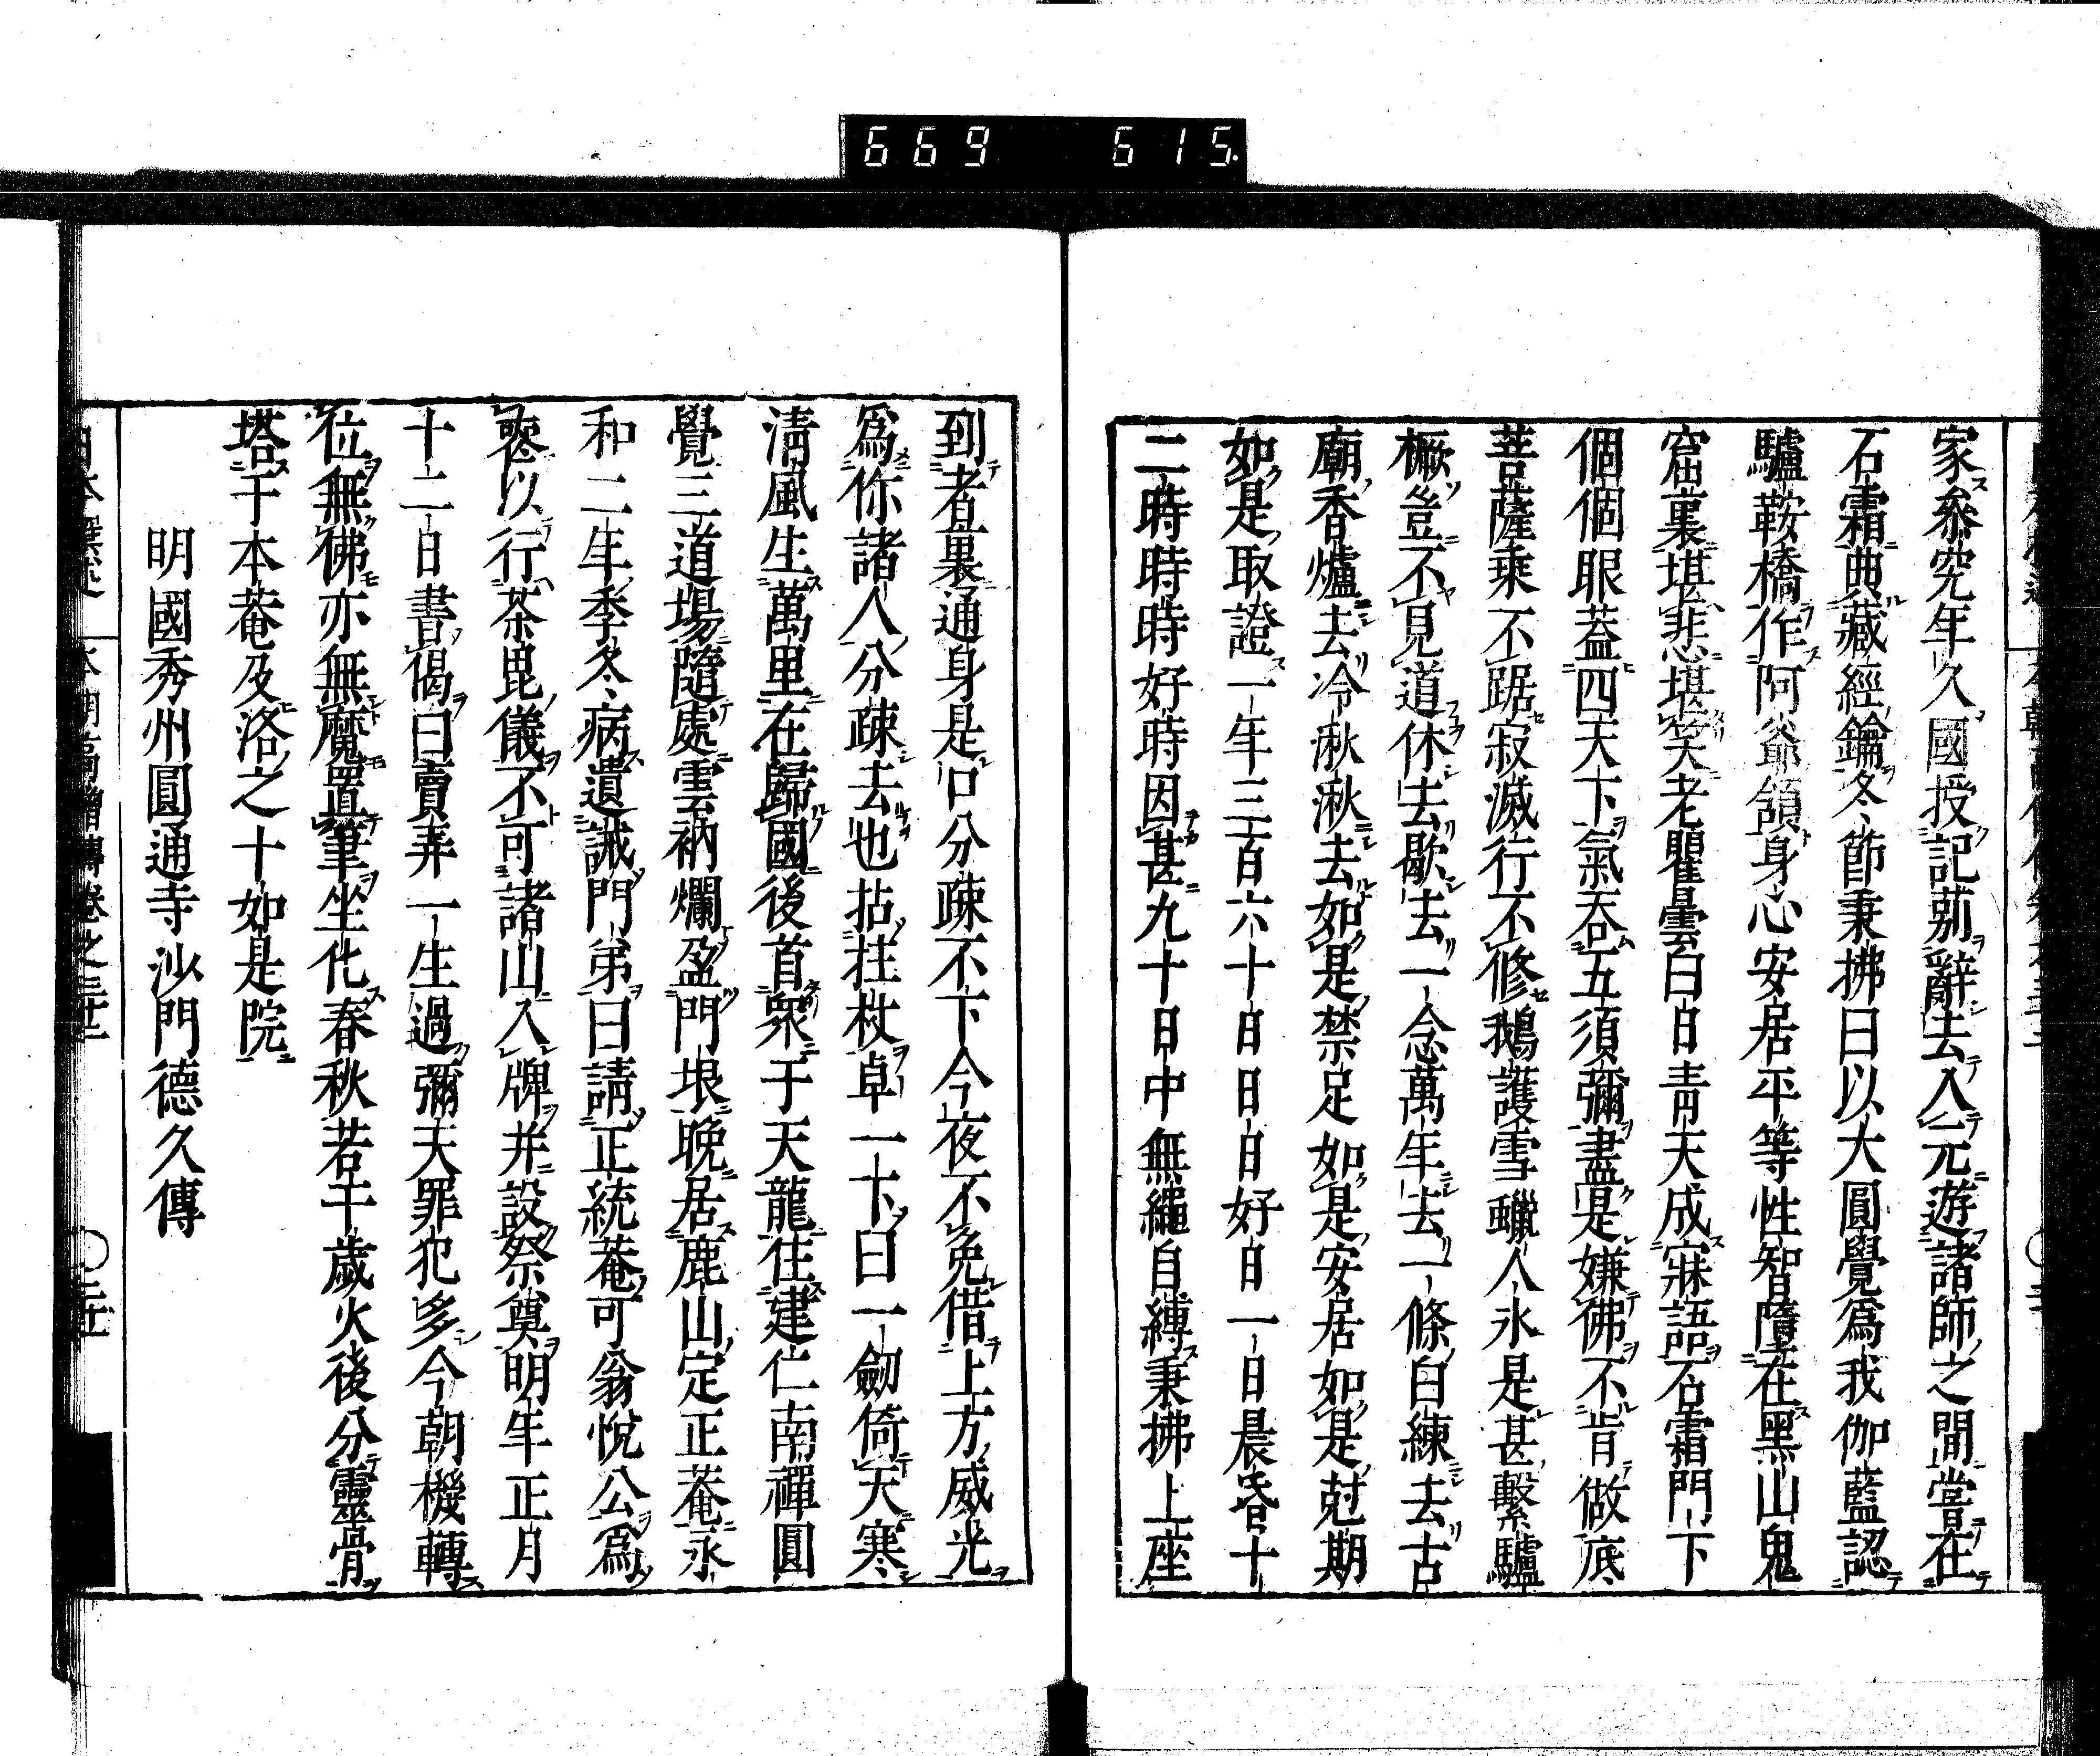 669 615.
家參究年久國授記莂辭去入元遊諸師之間嘗在
石霜典藏經鑰冬節秉拂曰以大圓覺爲我伽藍認
驢鞍橋作阿爺頷身心安居平等性智墮在黑山鬼
窟裏堪悲堪笑老瞿曇白日青天成寐語石霜門下
個個眼蓋四天下氣吞五須彌盡是嫌佛不肯做底
菩薩乘不踞寂滅行不修鵝護雪蠟人氷是甚繫驢
橛豈不見道休去歇去一念萬年去一條白練去古
廟香爐去冷湫湫去如是禁足如是安居如是尅期
如是取證一年三百六十日日日好日一日晨昏十
二時時時好時因甚九十日中無繩自縛秉拂上座
到者裏通身是口分疎不下今夜不免借上方威光
爲你諸人分疎去也拈拄杖卓一下曰一劒倚天寒
清風生萬里在歸國後首衆于天龍住建仁南禪圓
覺三道場隨處雲衲爛盈門垠晚居鹿山定正菴永
和二年季冬病遺誡門弟曰請正統菴可翁悅公爲
喪以行茶毘儀不可諸山入牌并設祭奠明年正月
十二日書偈曰賣弄一生過彌天罪犯多今朝機轉
位無佛亦無魔置筆坐化春秋若干歲火後分靈骨
塔于本菴及洛之十如是院
明國秀州圓通寺沙門德久傳
本朝高僧傳卷之三十三